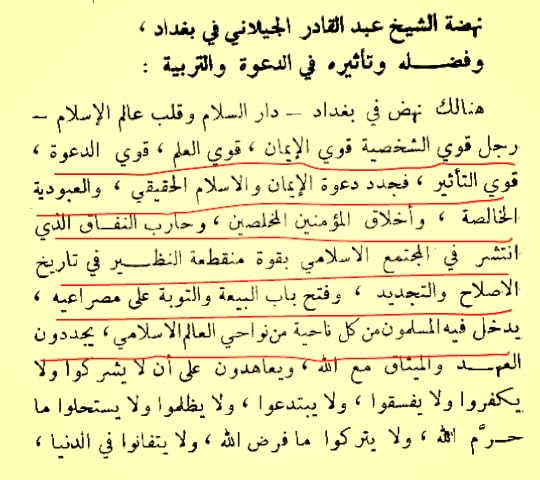 نهضة الشيخ عبد القادر الجيلاني في بغداد ،
وفضـــله وتأثيره في الدعوة والتربية :
هنالك نهض في بغداد – دار السلام وقلب عالم الإسلام –
رجل قوي الشخصية قوي الإيمان ، قوي العلم ، قوي الدعوة ،
قوي التأثير ، فجدد دعوة الإيمان والاسلام الحقيقي ، والعبودية
الخالصة ، وأخلاق المؤمنين المخلصين ، وحارب النفـاق الذي
انتشر في المجتمع الاسلامي بقوة منقطعة النظـــير في تاريخ
الاصلاح والتجديد ، وفتح باب البيعة والتوبة على مصراعيه ،
يدخل فيه المسلمون من كل ناحية من نواحي العالم الاسلامي ، يجددون
العهـــد والميثاق مع الله ، ويعاهدون على أن لا يشركوا ولا
يكفروا ولا يفسقوا ، ولا يبتدعوا ، ولا يظلموا ولا يستحلوا ما
حــرَّم الله ، ولا يتركوا ما فرض الله ، ولا يتفانوا في الدنيا ،